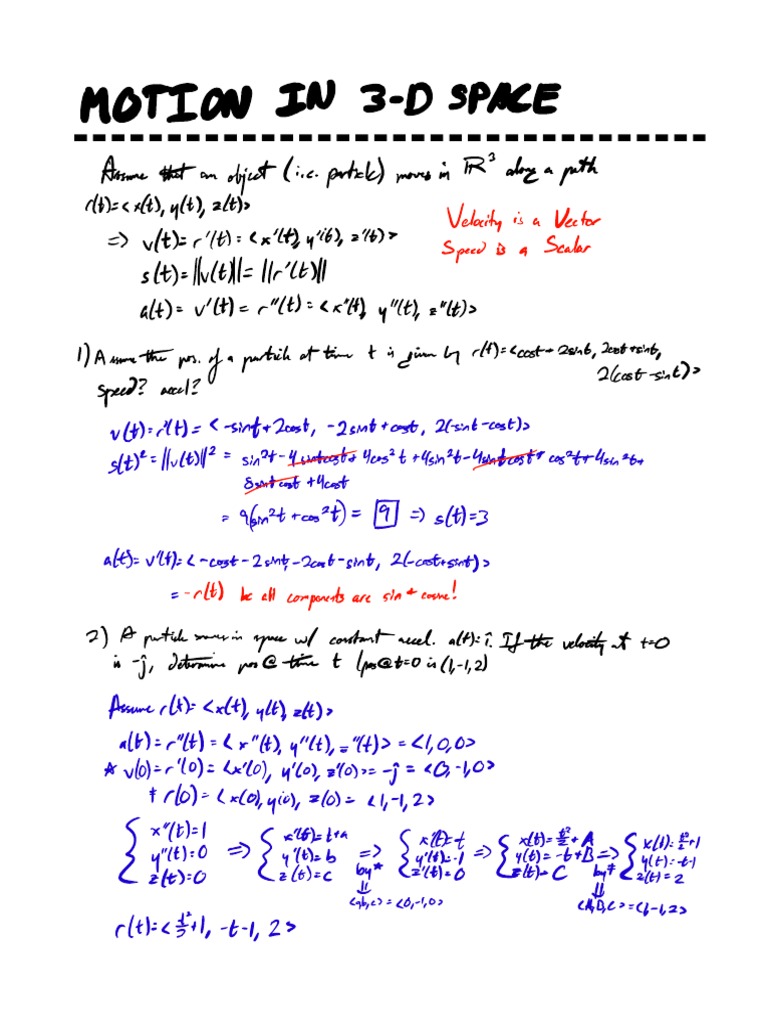 MOTION IN 3-D SPACE
Assume that an object (i.e. particle) moves in ℝ³ along a path
r(t)=<x(t), y(t), z(t)>
=> v(t)=r'(t)=<x'(t), y'(t), z'(t)>
Velocity is a Vector
Speed is a Scalar
s(t)=||v(t)||=||r'(t)||
a(t)=v'(t)=r''(t)=<x''(t), y''(t), z''(t)>
1) Assume the pos. of a particle at time t is given by r(t)=<cost+2sint, 2cost+sint,
2(cost-sint)>
speed? accel?
v(t)=r'(t)=<-sint+2cost, -2sint+cost, 2(-sint-cost)>
s(t)²=||v(t)||²= sin²t-4sintcost+4cos²t+4sin²t-4sintcost+cos²t+4sin²t+
8sintcost+4cost
=9(sin²t+cos²t)=9 => s(t)=3
a(t)=v'(t)=<-cost-2sint,-2cost-sint, 2(-cost+sint)>
=-r(t) bc all components are sin + cosine!
2) A particle moves in space w/ constant accel. a(t)=î. If the velocity at t=0
is -ĵ, determine pos @ time t (pos@t=0 is (1,-1,2)
Assume r(t)=<x(t), y(t), z(t)>
a(t)=r''(t)=<x''(t), y''(t), z''(t)>=<1,0,0>
* v(0)=r'(0)=<x'(0), y'(0), z'(0)>=-ĵ=<0,-1,0>
‡ r(0)=<x(0),y(0), z(0)=<1,-1,2>
{ x''(t)=1 => { x'(t)=t+a => { x'(t)=t => { x(t)=t²/2+A => { x(t)=t²/2+1
y''(t)=0 y'(t)=b by* y'(t)=-1 y(t)=-t+B by‡ y(t)=-t-1
z(t)=0 z(t)=c z'(t)=0 z(t)=C z(t)=2
<a,b,c>=<0,-1,0> <A,B,C>=<1,-1,2>
r(t)=<t²/2+1, -t-1, 2>